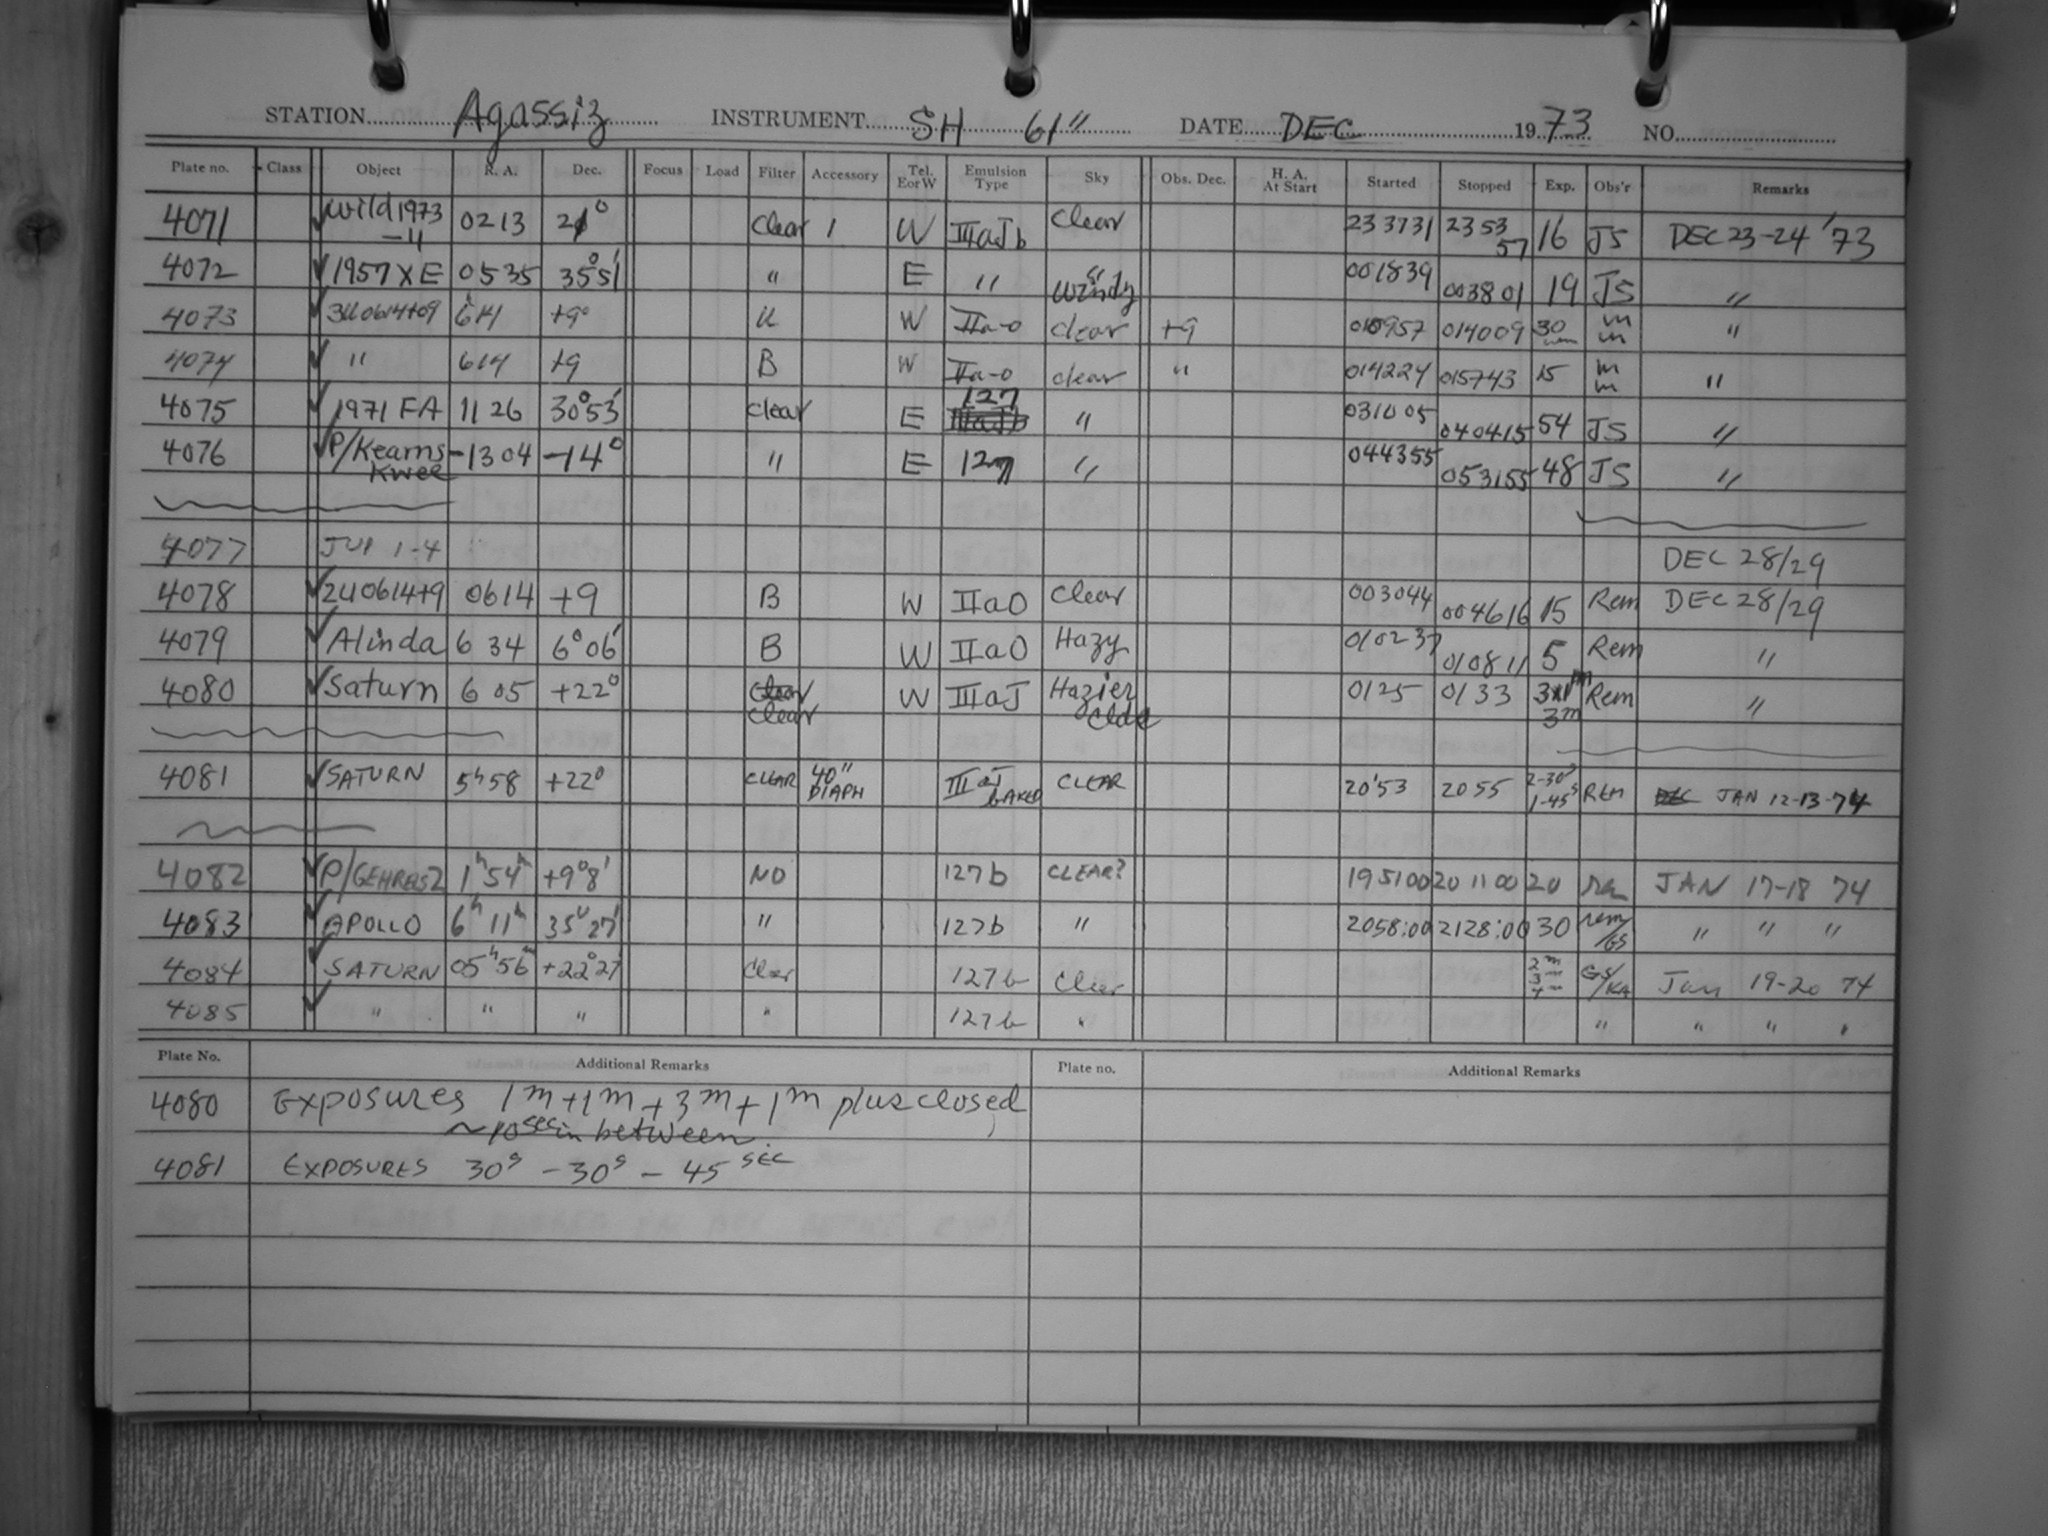 STATION Agassiz INSTRUMENT SH 61" DATE DEC 1973 NO.
Plate no. Class Object R. A. Dec. Focus Load Filter Accessory Tel. E or W Emulsion Type Sky Obs. Dec. H. A. At Start Started Stopped Exp. Obs'r Remarks
4071 ✓ Wild 1973 -11 0213 21° Clear 1 W IIIaJb Clear 233731 235357 16 JS DEC 23-24 '73
4072 ✓ 1957 XE 0535 35°51' " E " Windy 001839 003801 19 JS "
4073 ✓ 3U0614+09 6h14 +9° U W IIa-O clear +9 010957 014009 30 m m "
4074 ✓ " 614 +9 B W IIa-O clear " 014224 015743 15 m m "
4075 ✓ 1971 FA 11 26 30°53' Clear E 127 IIIaJb " 031005 040415 54 JS "
4076 ✓ P/Kearns Kwee -1304 -14° " E 127 " 044355 053155 48 JS "
4077 JUP 1-4 DEC 28/29
4078 ✓ 2U0614+9 0614 +9 B W IIaO Clear 003044 004616 15 Rem DEC 28/29
4079 ✓ Alinda 6 34 6°06' B W IIaO Hazy 010237 010811 5 Rem "
4080 ✓ Saturn 6 05 +22° Clear Clear W IIIaJ Hazier 0125 0133 3x1m 3m Rem "
4081 ✓ SATURN 5h58 +22° CLEAR 40" DIAPH IIIaJ BAKED CLEAR 20'53 2055 2-30s 1-45s REM DEC JAN 12-13-74
4082 ✓ P/GEHRELS2 1h54m +9°8' NO 127b CLEAR? 195100 201100 20 rem JAN 17-18 74
4083 ✓ APOLLO 6h 11m 35° 27' " 127b " 2058:00 2128:00 30 rem/GS " " "
4084 ✓ SATURN 05h56m +22°27' Clear 127b Clear 2m 3m 4m GS/KA Jan 19-20 74
4085 ✓ " " " " 127b " " " " "
Plate No. Additional Remarks Plate no. Additional Remarks
4080 Exposures 1m+1m+3m+1m plus closed
~10sec in between.
4081 EXPOSURES 30s - 30s - 45 sec